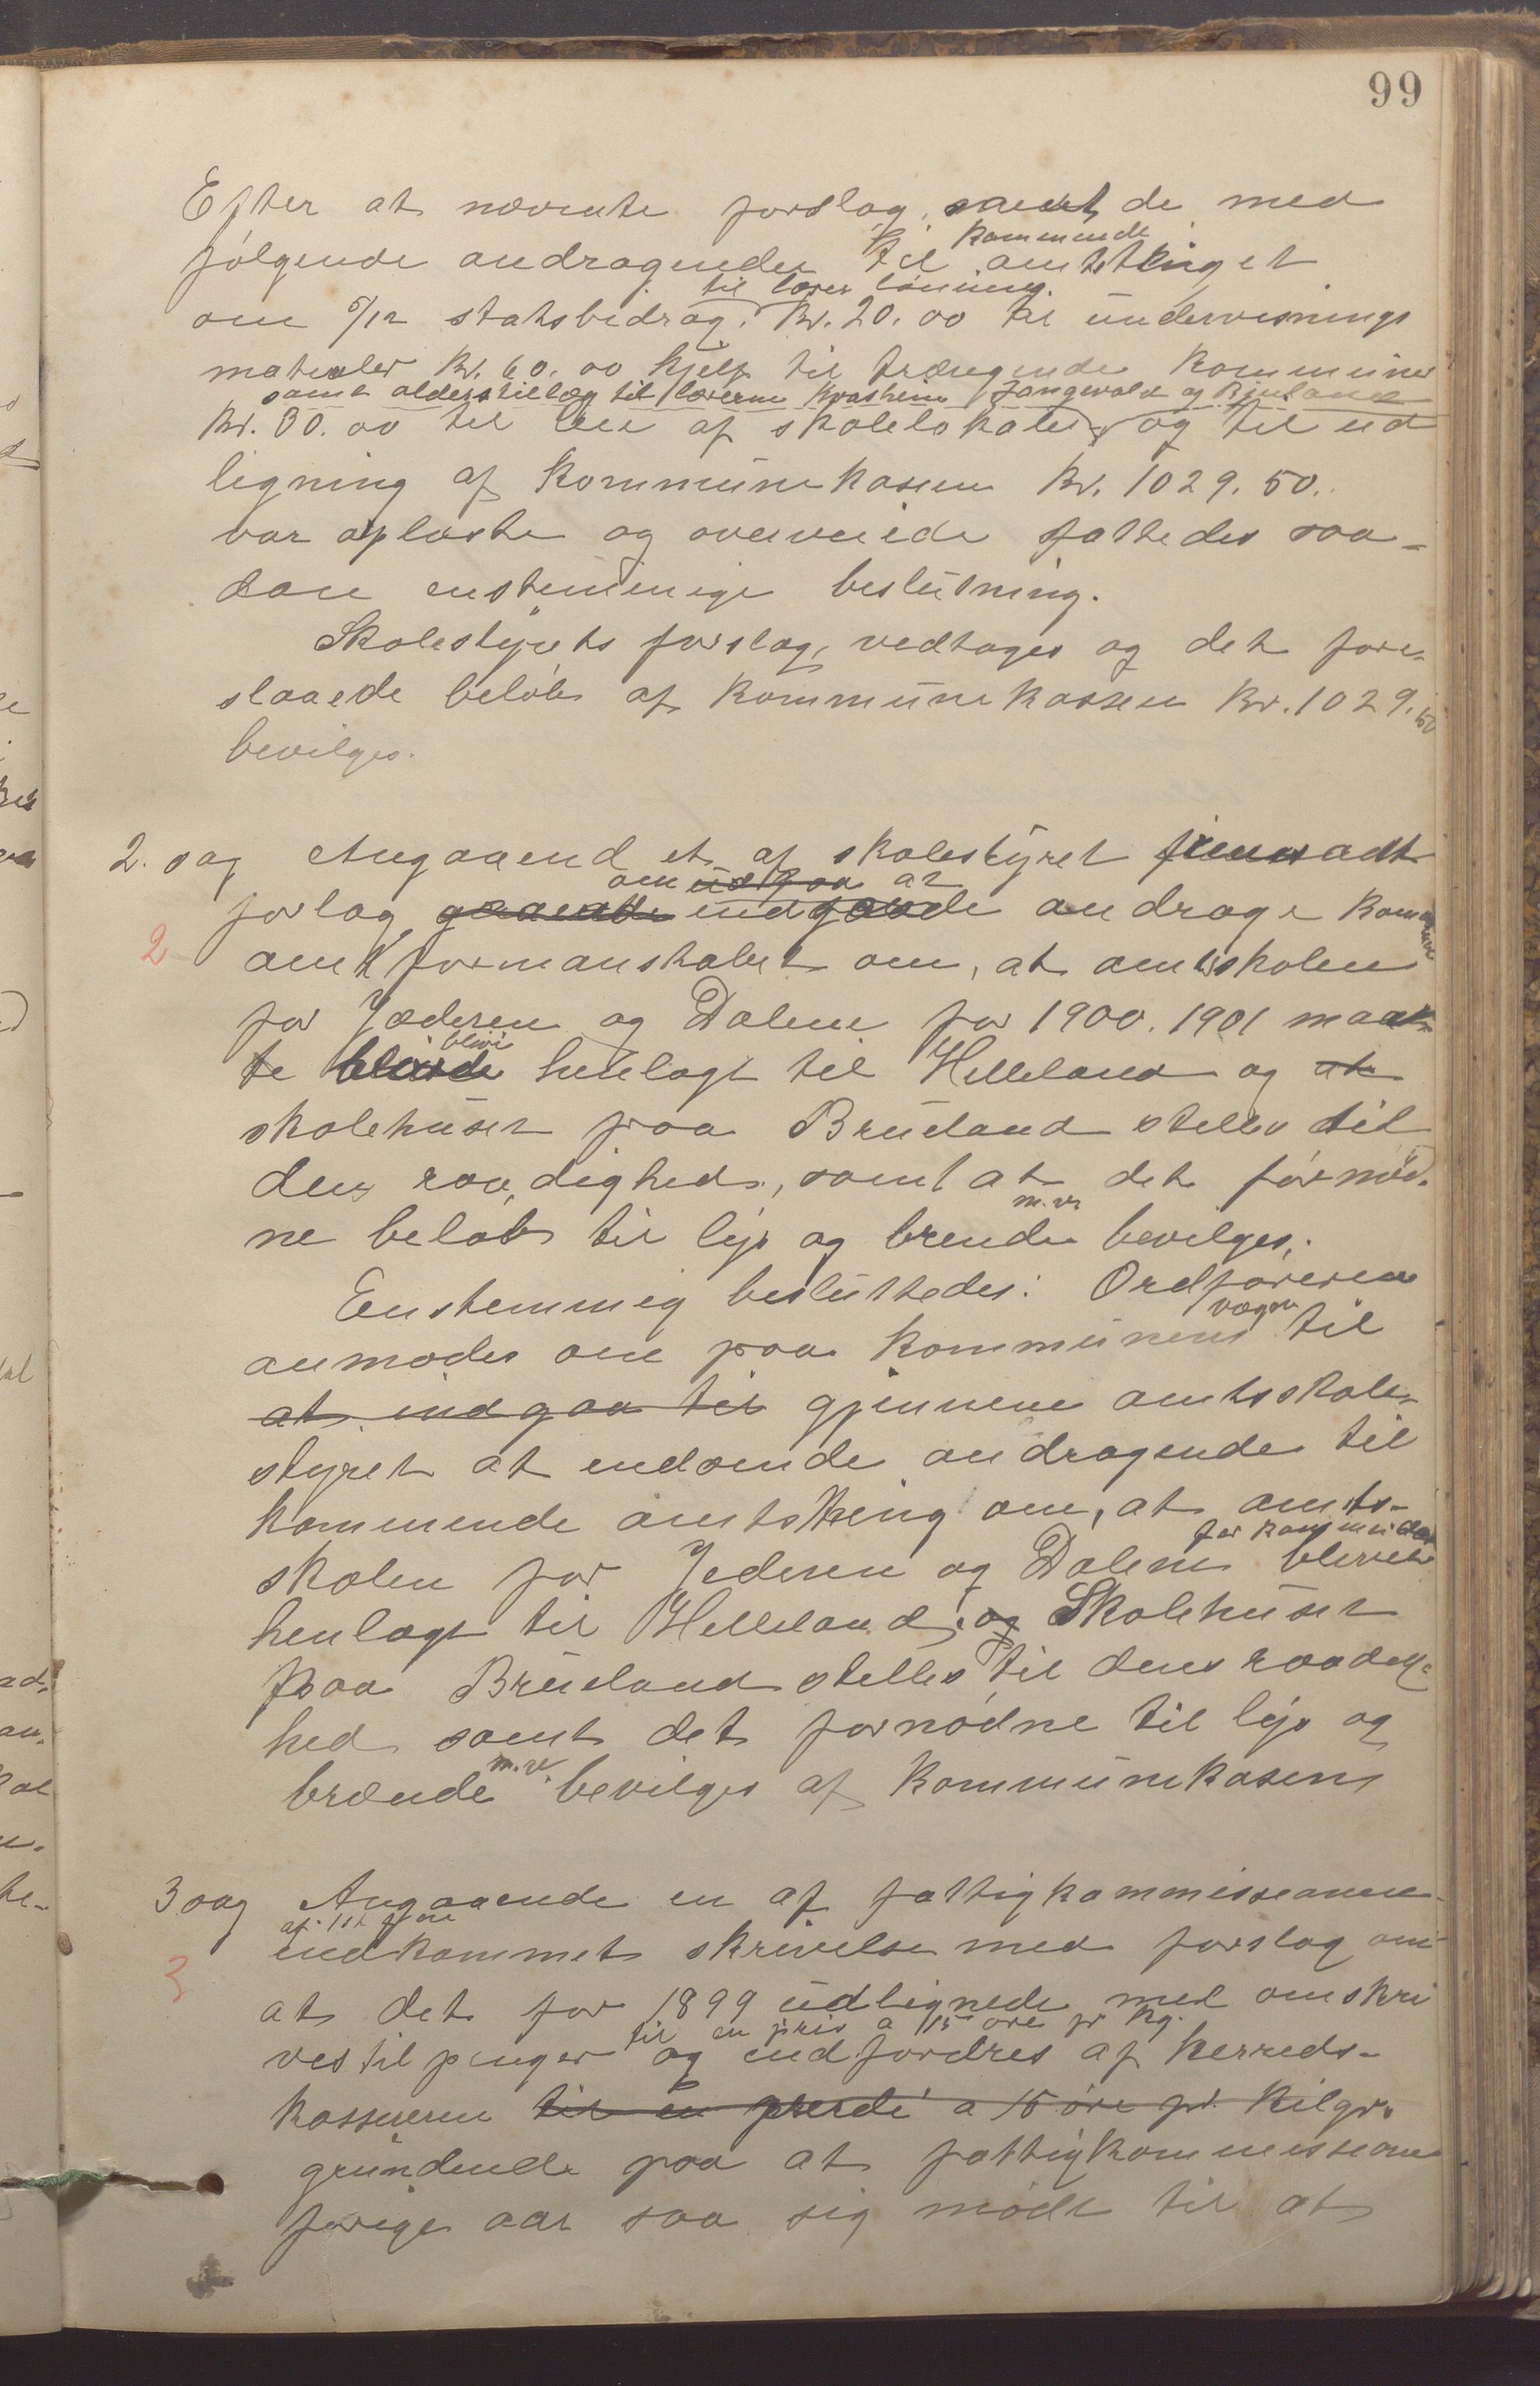 99
Efter at nævnte forslag, samt de med
kommende
følgende andragender til amtstinget
til lærer lønning.
om 5/12 statsbidrag. Kr. 20.00 til undervisnings
materialer Kr. 60.00 hjelp til trængende kommuner
samt alderstillæg til lærerne Kvasheim Tangvald og
Kr. 30.00 til leie af skolelokaler og til ud
ligning af kommunekassen Kr. 1029.50.
var oplæste og overveiede fattedes saa-
dan enstemmige beslutning.
Skolestyrets forslag, vedtages og det fore-
slaaede beløb af kommunekassen Kr. 1029.50
bevilges.
2. sag Angaaend et af skolestyret fremsadt
om indgaa at
forlag, andrage kommende
2 amtformanskabet om, at amtsskolen
for Jæderen og Dalene for 1900.1901 maat-
blive
te henlagt til Helleland og at
skolehuset paa Brueland stelles til
dens raadighed, samt at det fornød.
m.v.
ne beløb til lys og brende bevilges.
Enstemmig besluttedes: Ordføreren
vegne
anmodes om paa kommunens til
at indgaa til gjennem amtsskole-
styret at indsende andragende til
kommende amtsthing om, at amts-
for kommende
skolen for Jederen og Dalene bliver
henlagt til Helleland, og Skolehuset
paa Brueland stelles til dens raadig-
hed samt det fornødne til lys og
m.v.
brænde bevilges af kommunekassen
3 sag Angaaende en af fattigkommissionen
indkommet skrivelse med forslag om
3
at det for 1899 udlignede mel omskri
til en pris a 15 øre pr Kg.
ves til penger og indfordres af herreds-
kassereren til en a 15 øre pr. Kilgr.
grundende paa at fattigkommissionen
forige aar saa sig nødt til at